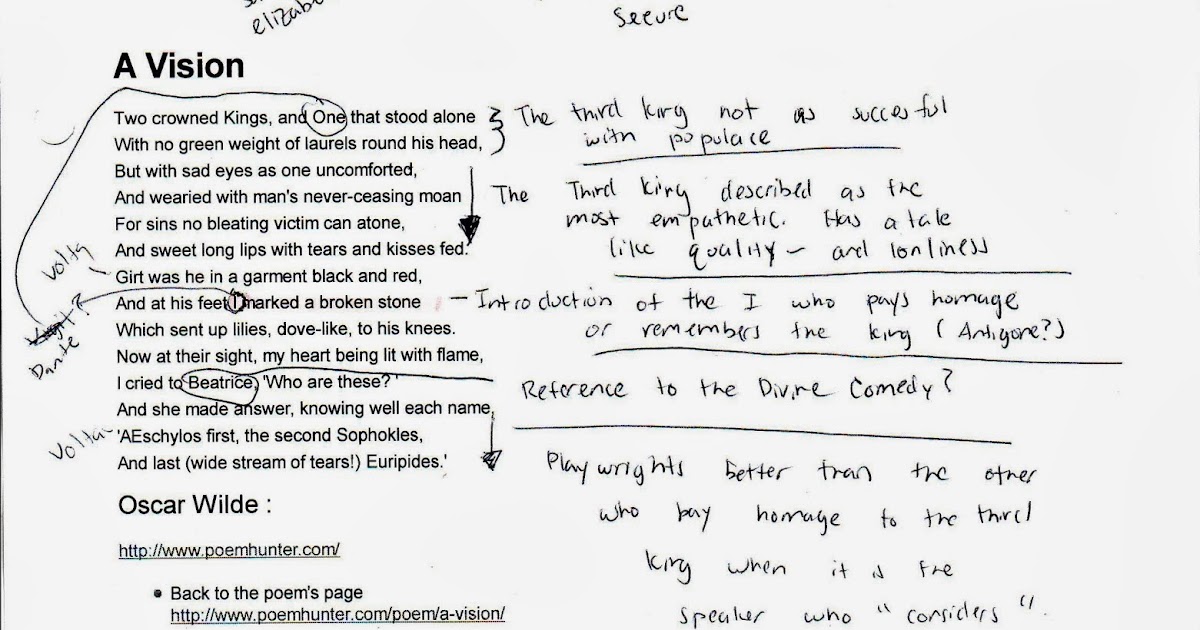 elizab
Secure
A Vision
Two crowned Kings, and One that stood alone
With no green weight of laurels round his head,
But with sad eyes as one uncomforted,
And wearied with man's never-ceasing moan
For sins no bleating victim can atone,
And sweet long lips with tears and kisses fed.
Girt was he in a garment black and red,
And at his feet I marked a broken stone
Which sent up lilies, dove-like, to his knees.
Now at their sight, my heart being lit with flame,
I cried to Beatrice, 'Who are these?'
And she made answer, knowing well each name,
'AEschylos first, the second Sophokles,
And last (wide stream of tears!) Euripides.'
Oscar Wilde :
http://www.poemhunter.com/
• Back to the poem's page
http://www.poemhunter.com/poem/a-vision/
volta
Dante
Volta
The third king not as succesful
with populace
The Third king described as the
most empathetic. Has a tale
like quality – and lonliness
– Introduction of the I who pays homage
or remembers the king (Antigone?)
Reference to the Divine Comedy?
Playwrights better than the other
who pay homage to the third
king when it is the
speaker who "considers".